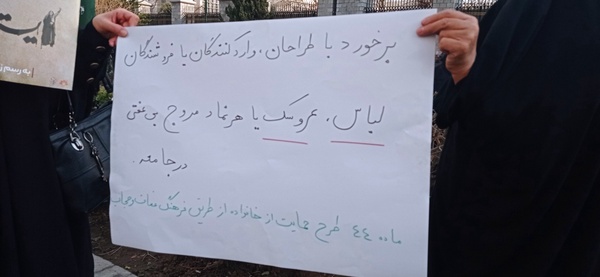 برخورد با طراحان، واردکنندگان یا فروشندگان
لباس، عروسک یا هر نماد مروج بی عفتی
در جامعه.
ماده ۴۴ طرح حمایت از خانواده از طریق فرهنگ عفاف و حجاب